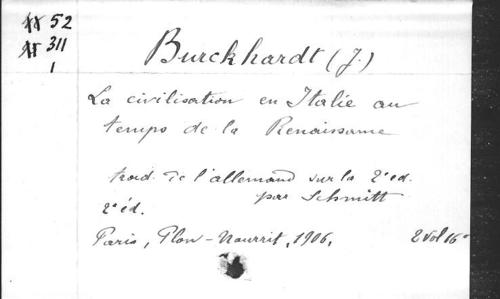 52
311
1
Burckhardt (J.)
La civilisation en Italie au
temps de la Renaissance
trad. de l'allemand sur la 2e éd.
par Schmitt
2e éd.
Paris, Plon-Nourrit, 1906. 2 vol 16°